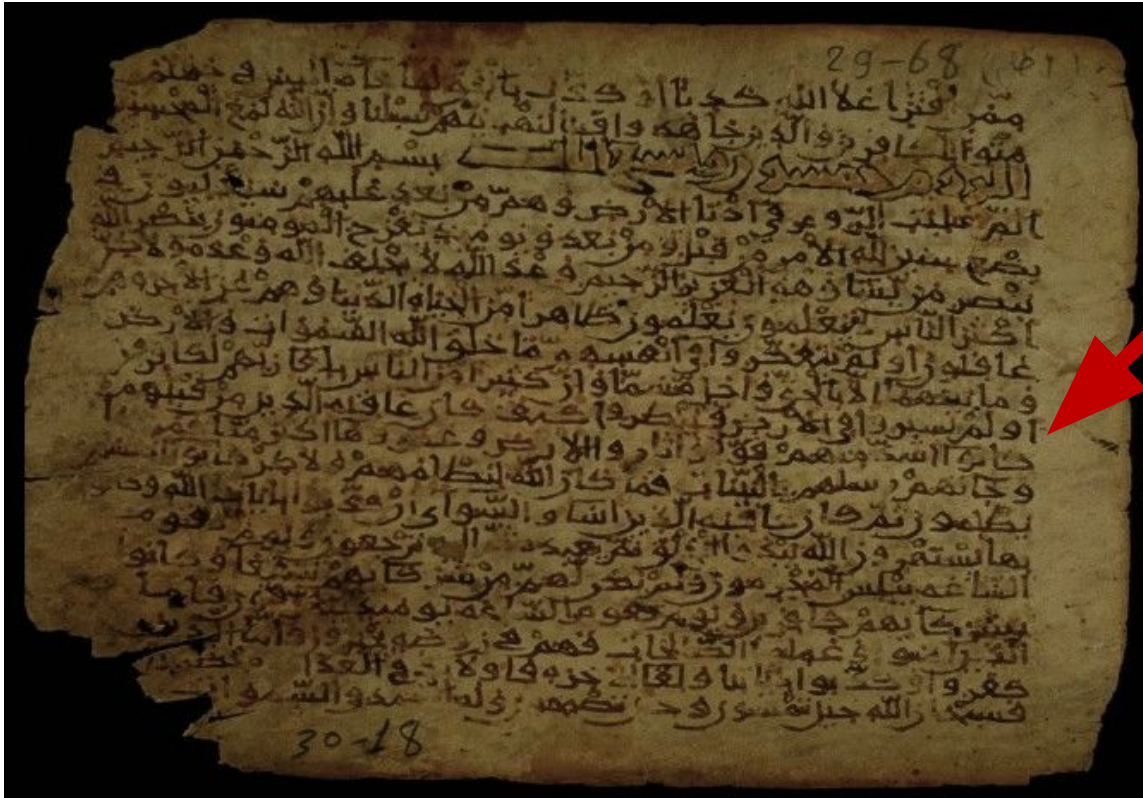 29-68
ممن افترا علا الله كذبا او كذب بالحق لما جاه اليس في جهنم
مثوا للكافرين والذين جاهدوا فينا لنهدينهم سبلنا وان الله لمع المحسنين
بسم الله الرحمن الرحيم
الم غلبت الروم في ادنا الارض وهم من بعد غلبهم سيغلبون في
بضع سنين لله الامر من قبل ومن بعد ويوميذ يفرح المومنون بنصر الله
ينصر من يشا وهو العزيز الرحيم وعد الله لا يخلف الله وعده ولاكن
اكثر الناس لا يعلمون يعلمون ظاهرا من الحياه الدنيا وهم عن الاخره هم
غافلون اولم يتفكروا في انفسهم ما خلق الله السماوات والارض
وما بينهما الا بالحق واجل مسما وان كثيرا من الناس بلقاي ربهم لكافرون
اولم يسيروا في الارض فينظروا كيف كان عاقبه الذين من قبلهم
كانوا اشد منهم قوه واثاروا الارض وعمروها اكثر مما
وجاتهم رسلهم بالبينات فما كان الله ليظلمهم ولاكن كانوا انفسهم
يظلمون ثم كان عاقبه الذين اساوا السواى ان كذبوا بايات الله وكانوا
بها يستهزون الله يبدوا الخلق ثم يعيده ثم اليه ترجعون ويوم تقوم
الساعه يبلس المجرمون ولم يكن لهم من شركايهم شفعا وكانوا
بشركايهم كافرين ويوم تقوم الساعه يوميذ يتفرقون فاما
الذين امنوا وعملوا الصالحات فهم في روضه يحبرون واما الذين
كفروا وكذبوا باياتنا ولقا الاخره فاولايك في العذاب
فسبحان الله حين تمسون وحين تصبحون وله الحمد في السماوات
30-18